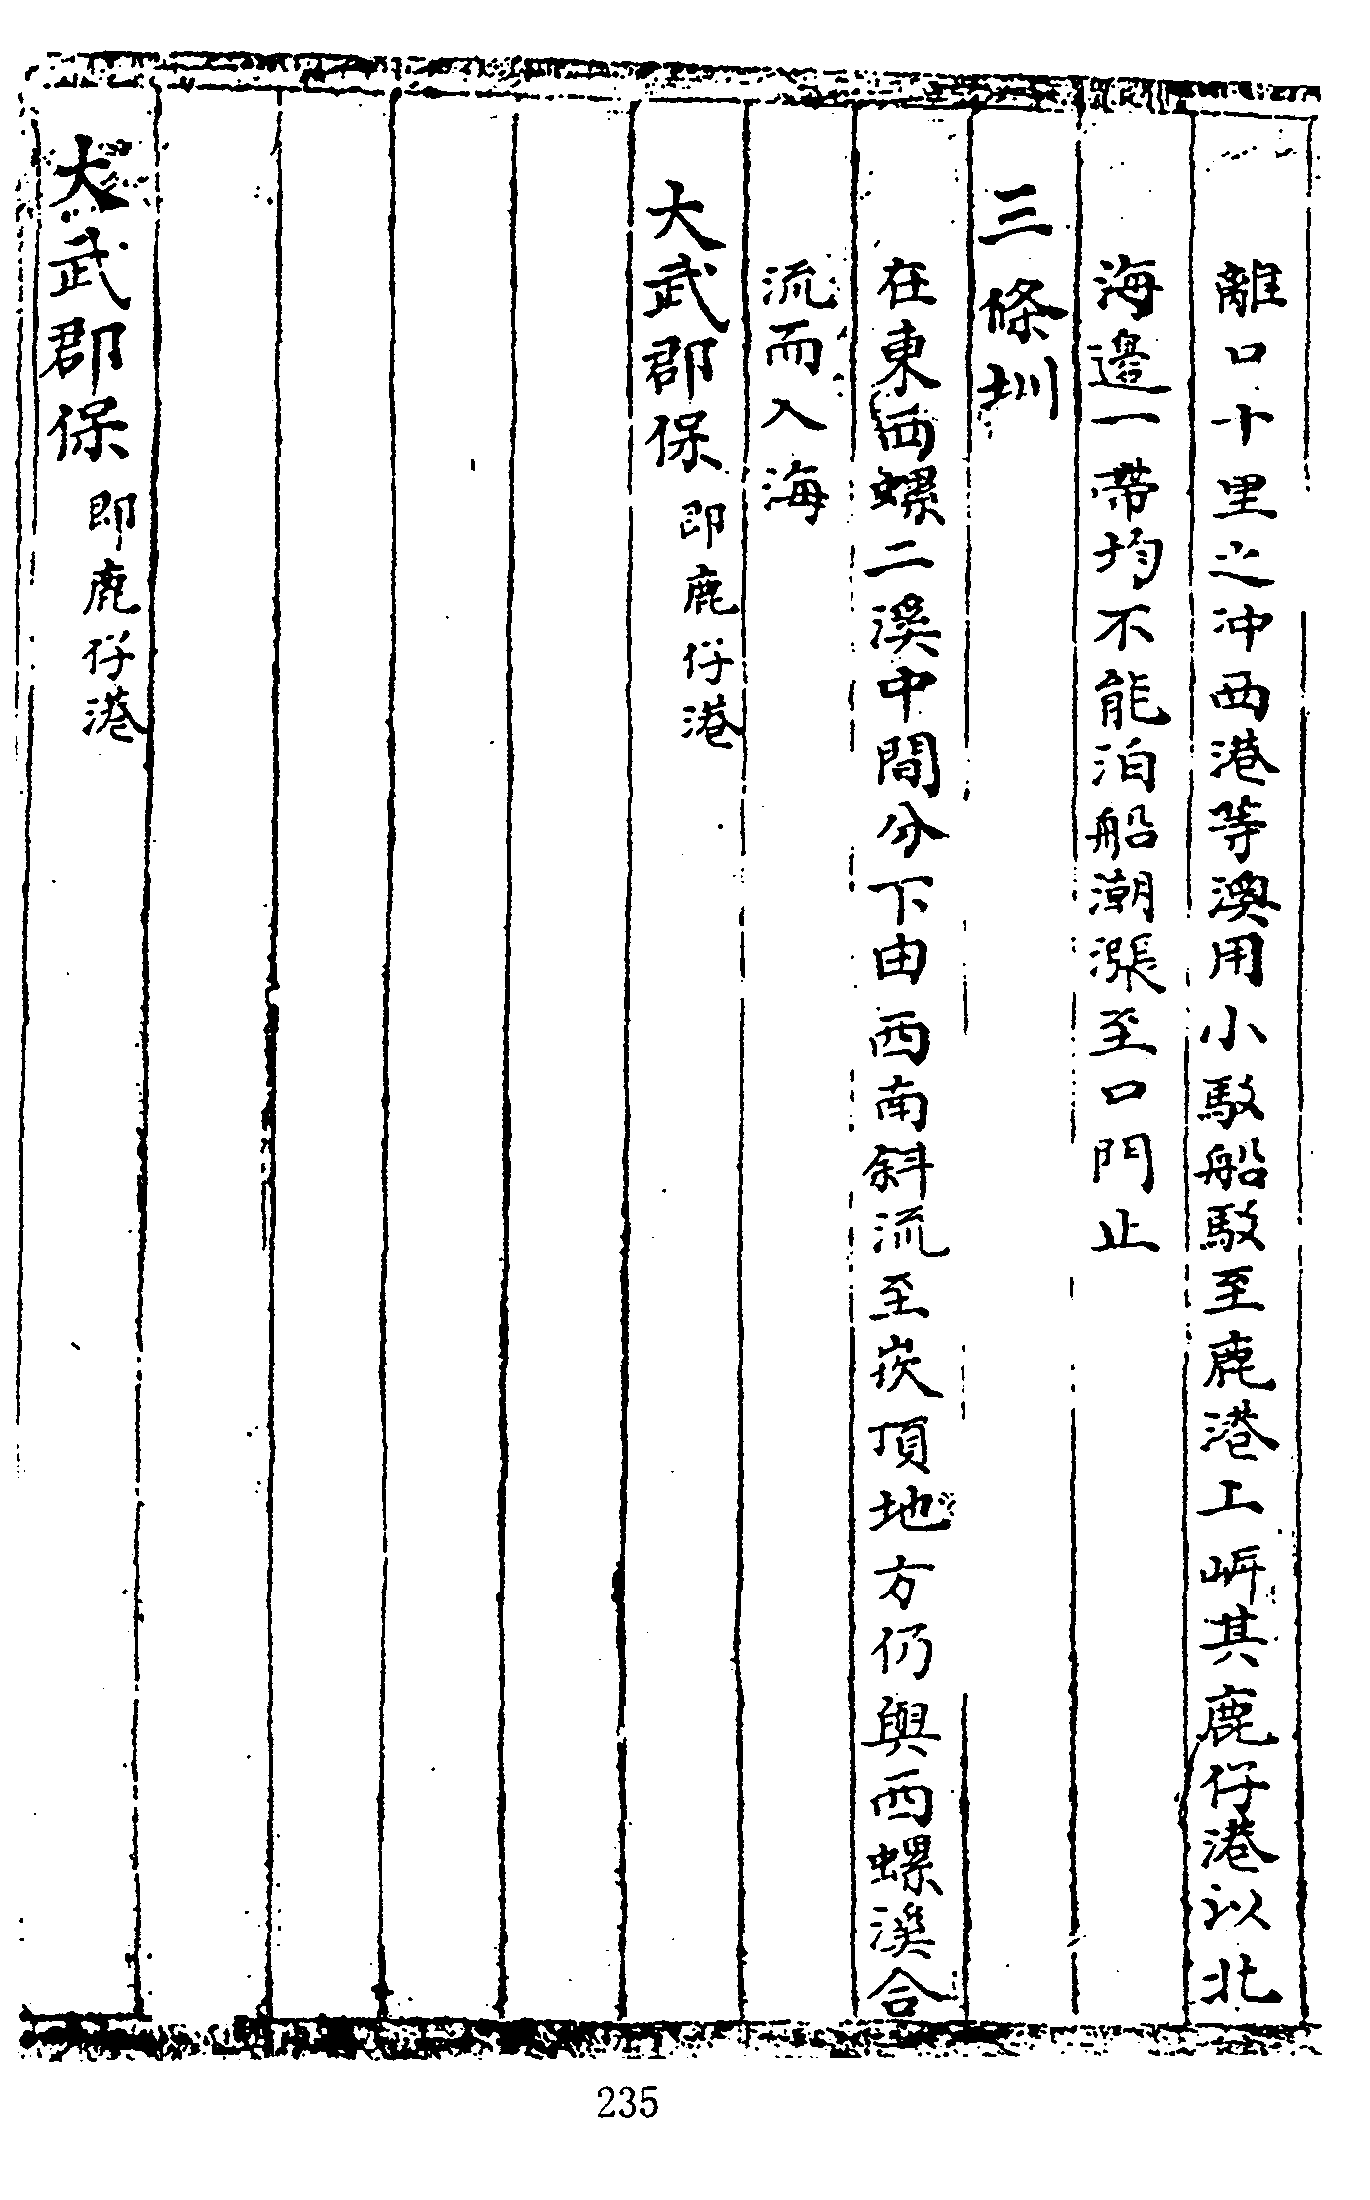 離口十里之冲西港等澳用小駁船駁至鹿港上岍其鹿仔港以北
海邉一帶均不能泊船潮漲至口門止
三條圳
在東西螺二溪中間分下由西南斜流至崁頂地方仍與西螺溪合
流而入海
大武郡保 即鹿仔港
大武郡保 即鹿仔港
235